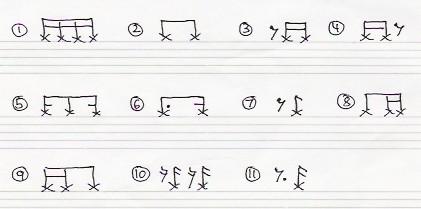 ① ② ③ ④
⑤ ⑥ ⑦ ⑧
⑨ ⑩ ⑪